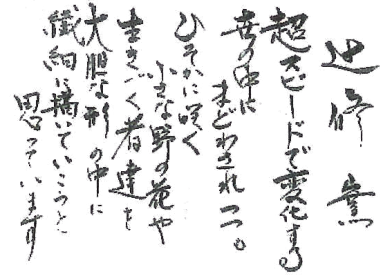 辻修窯
超スピードで変化する。
世の中に
まどわされつつ。
ひそかに咲く
小さな野の花や
生きづく者達を
大胆な形の中に
繊細に描いていこうと
思っています